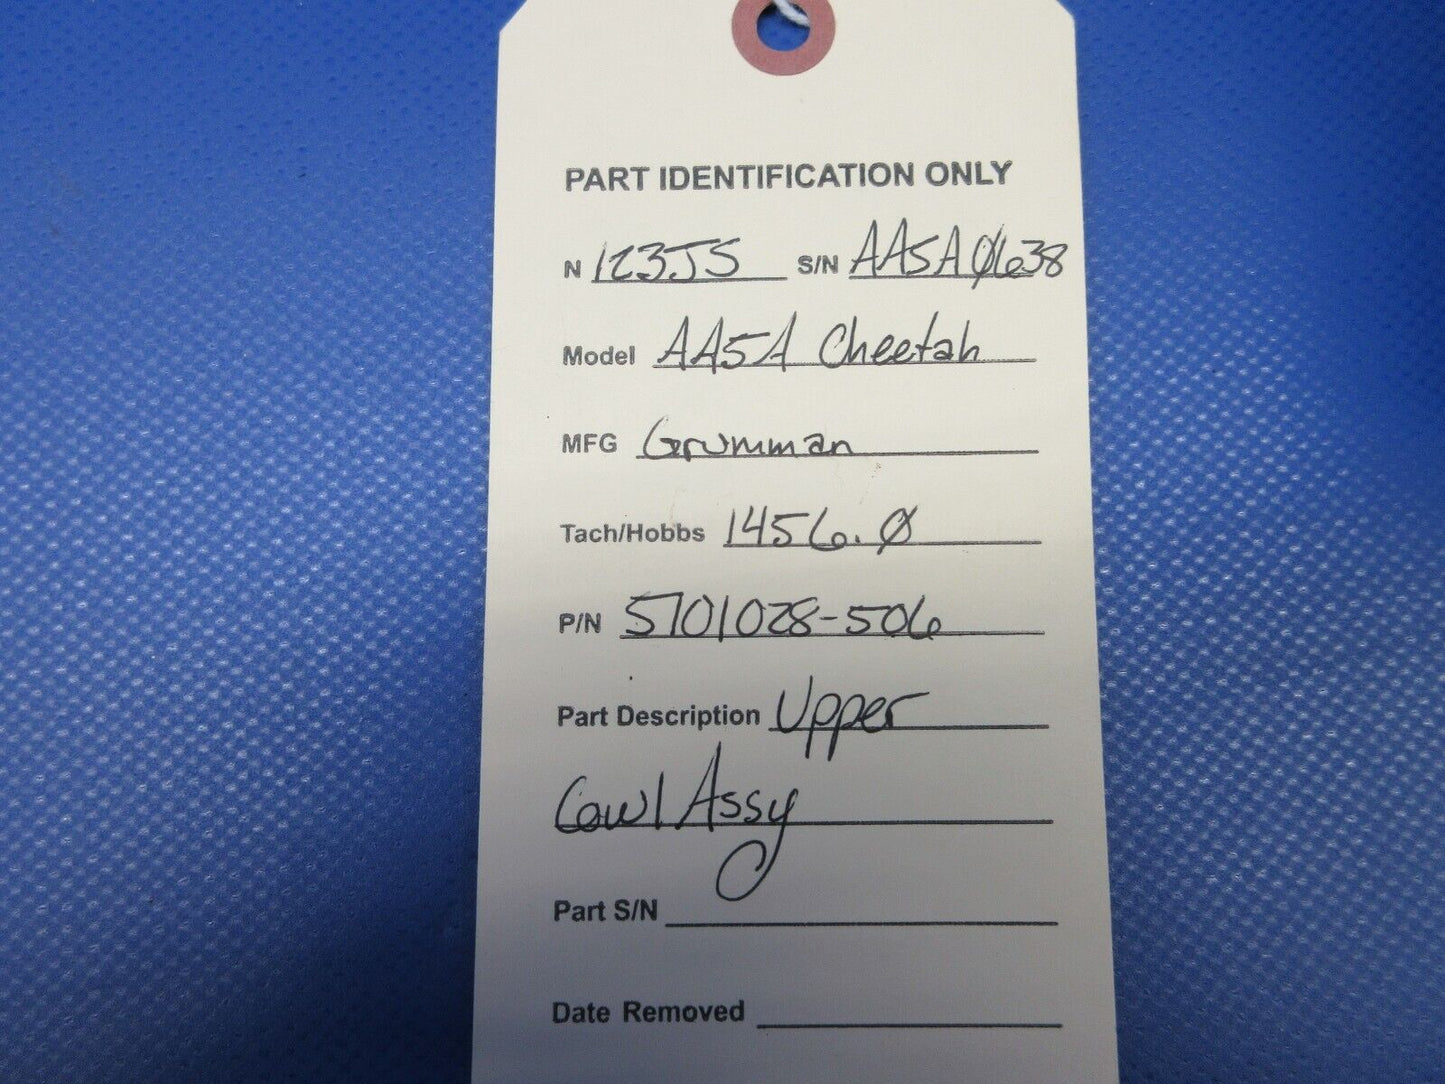 PART IDENTIFICATION ONLY
N 123JS S/N AA5A0638
Model AA5A Cheetah
MFG Grumman
Tach/Hobbs 1456.0
P/N 5701028-506
Part Description Upper
Cowl Assy
Part S/N
Date Removed